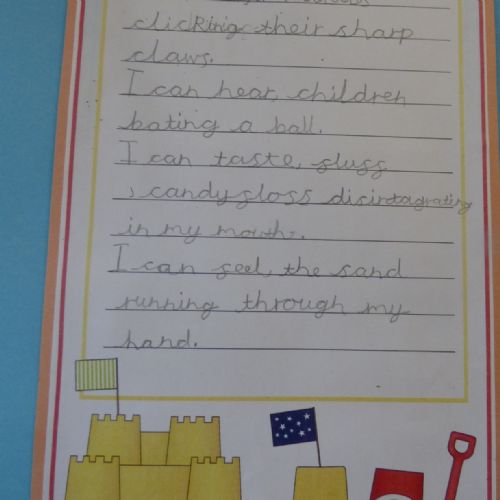 clicking their sharp
claws.
I can hear, children
bating a ball.
I can taste, fluff
, candyfloss disintagrating
in my mouth.
I can feel, the sand
running through my
hand.